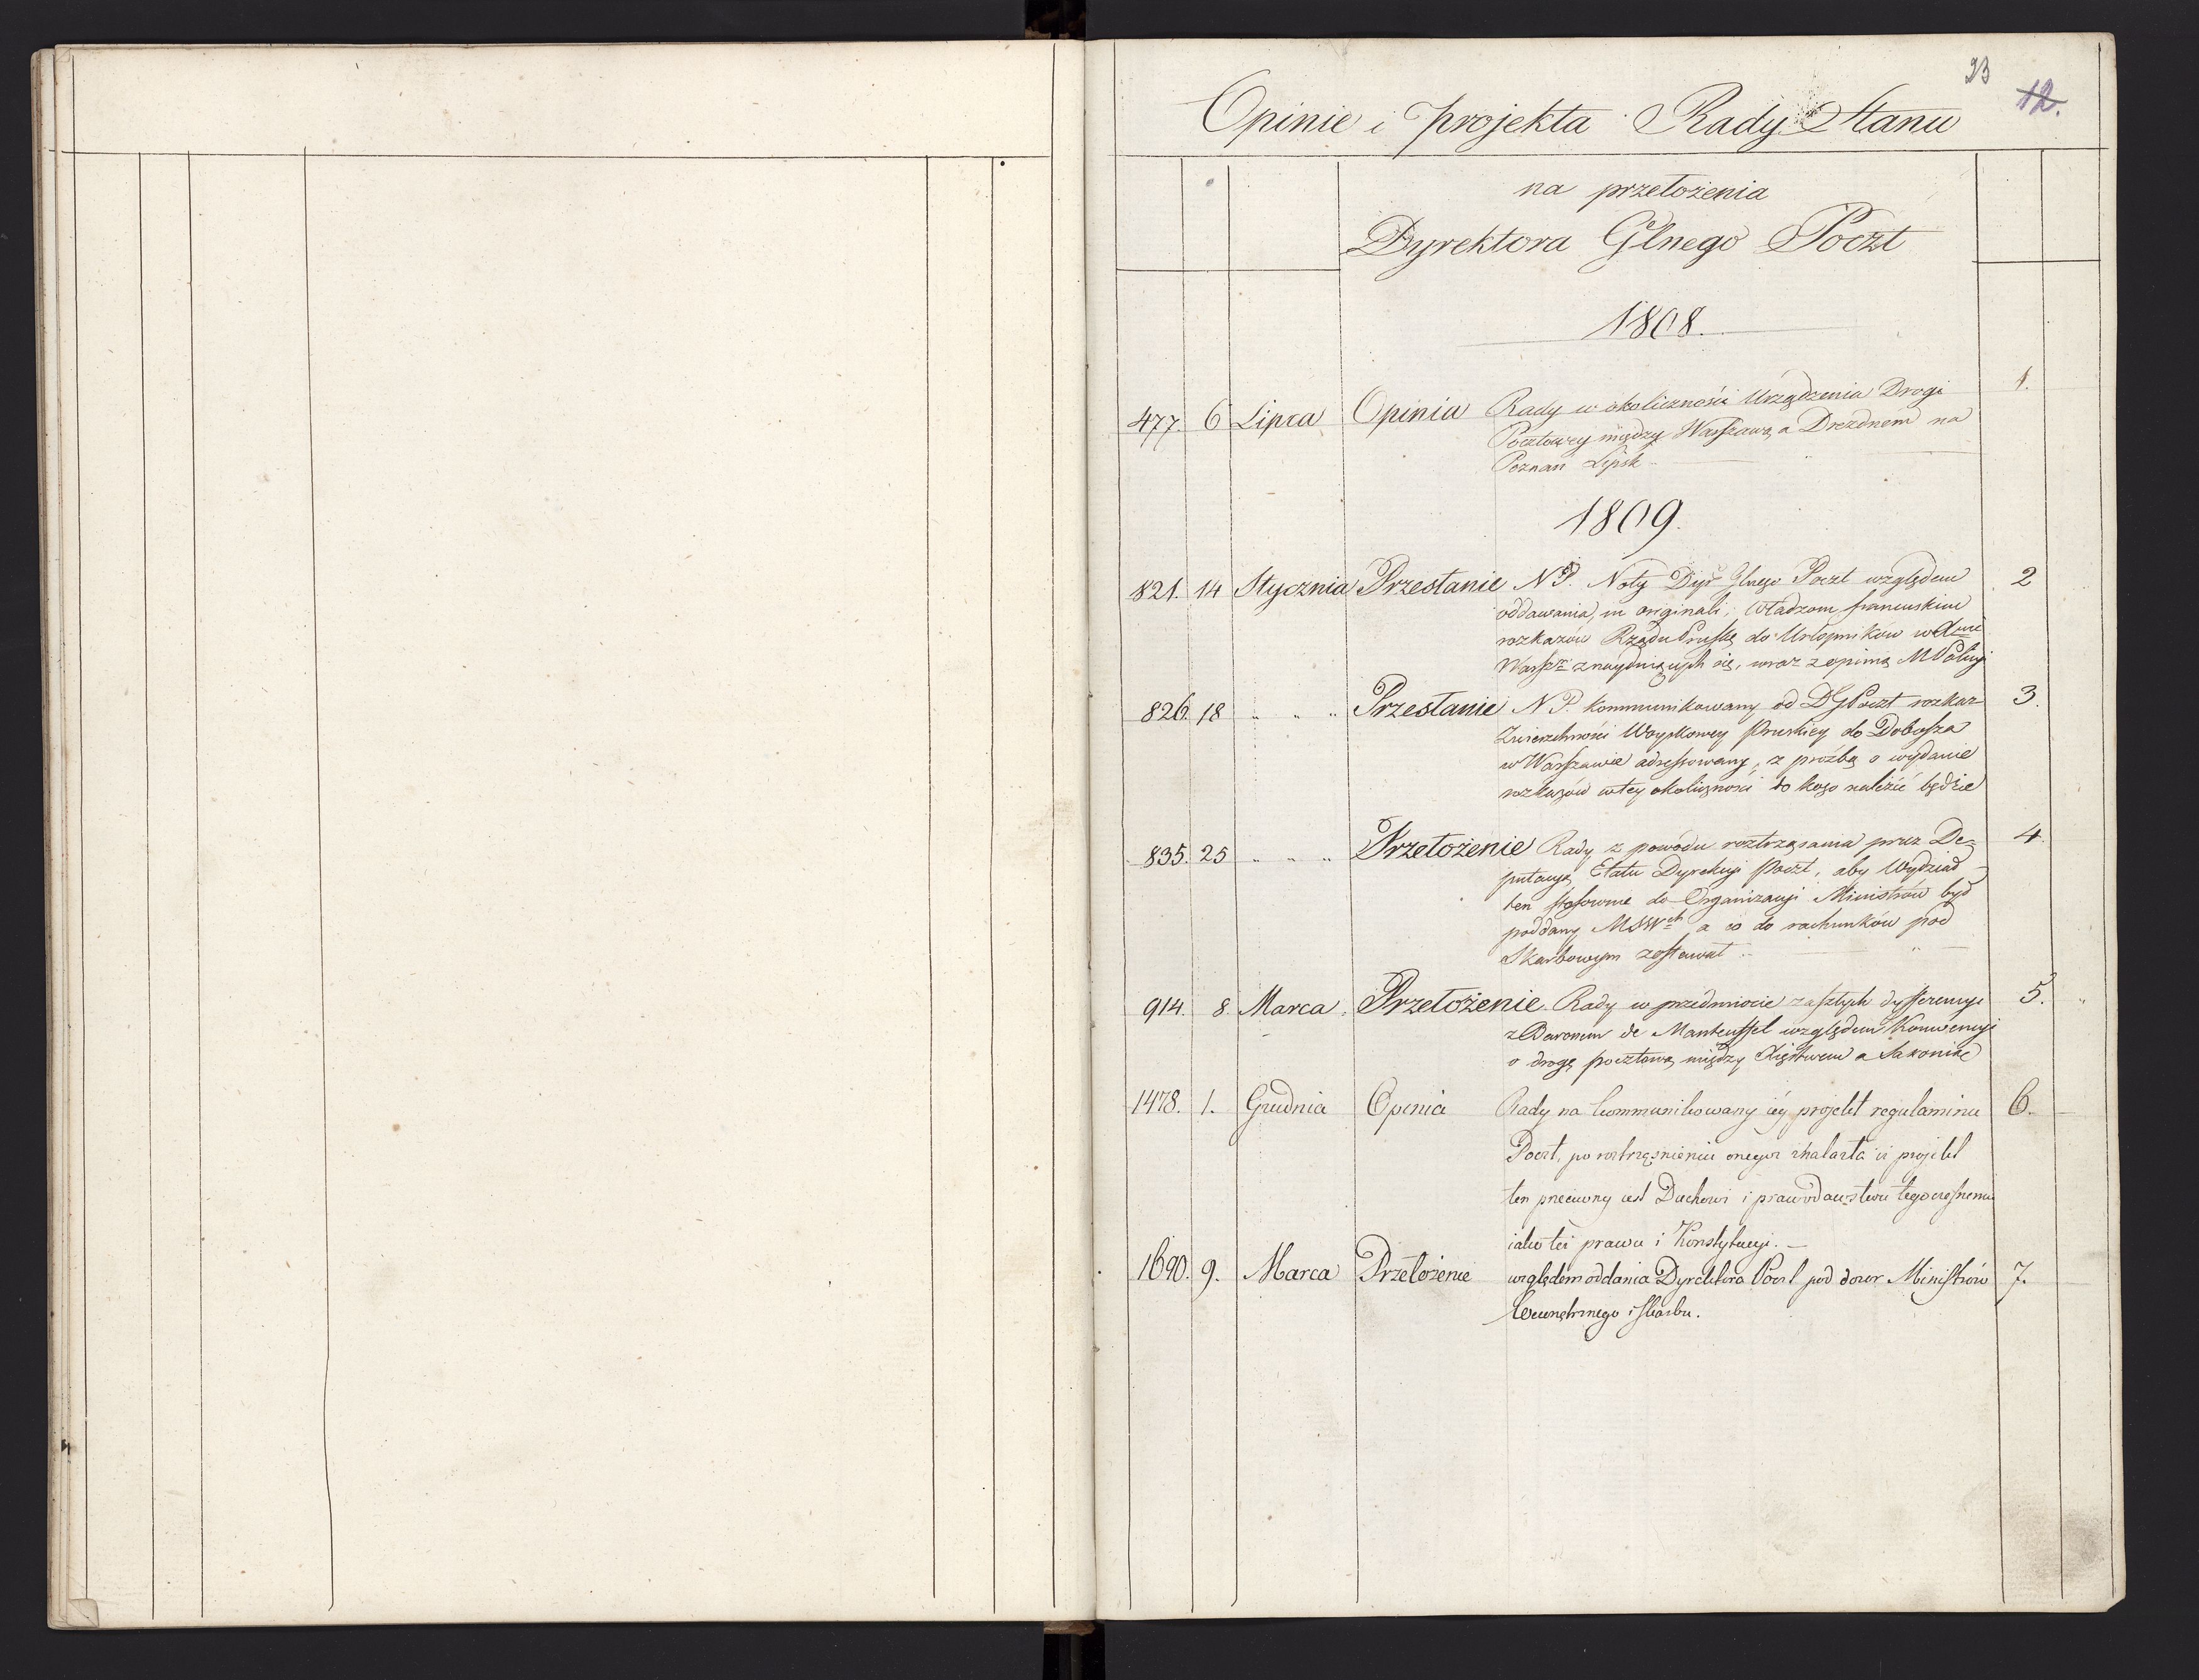 23
12.
Opinie i projekta Rady Stanu
na przełożenia
Dyrektora Glnego Poczt
1808.
477. 6 Lipca Opinia Rady w okoliczności Urządzenia Drogi 1.
Pocztowey między Warszawą a Dreznem na
Poznań Lipsk
1809.
821. 14 Stycznia Przesłanie N P. Noty Dyr Glnego Poczt względem 2
oddawania, in originali, Władzom francuskim
rozkazów Rządu Prusk do Urlopników w
Warsz znayduiących się, wraz z opinią M Policyi
826. 18 " " " Przesłanie N P. kommunikowany od DGPoczt rozkaz 3.
Zwierzchności Woyskowey Pruskiey do Dobosza
w Warszawie adressowany, z proźbą o wydanie
rozkazów w tey okoliczności do kogo należeć będzie
835. 25 " " " Przełożenie Rady z powodu roztrząsania przez De= 4
putacyą Etatu Dyrekcyi Poczt, aby Wydział
ten stosownie do Organizacyi Ministrów był
poddany MSWch, a co do rachunków pod
Skarbowym zostawał.
914. 8. Marca. Przełożenie Rady w przedmiocie zaszłych dyfferencyi 5.
z Baronem de Manteuffel względem Konwencyi
o drogę pocztową między Xięstwem a Saxonią
1478. 1. Grudnia Opinia Rady na kommunikowany iéy projekt regulaminu 6.
Poczt, po roztrząśnieniu onegoż znalazła iż projekt
ten przeciwny iest Duchowi i prawodawstwu tegoczesnemu
iako też prawu i Konstytucyi. —
1690. 9. Marca Przełożenie względem oddania Dyrektora Poczt pod dozor Ministrów 7.
Wewnętrznego i Skarbu.